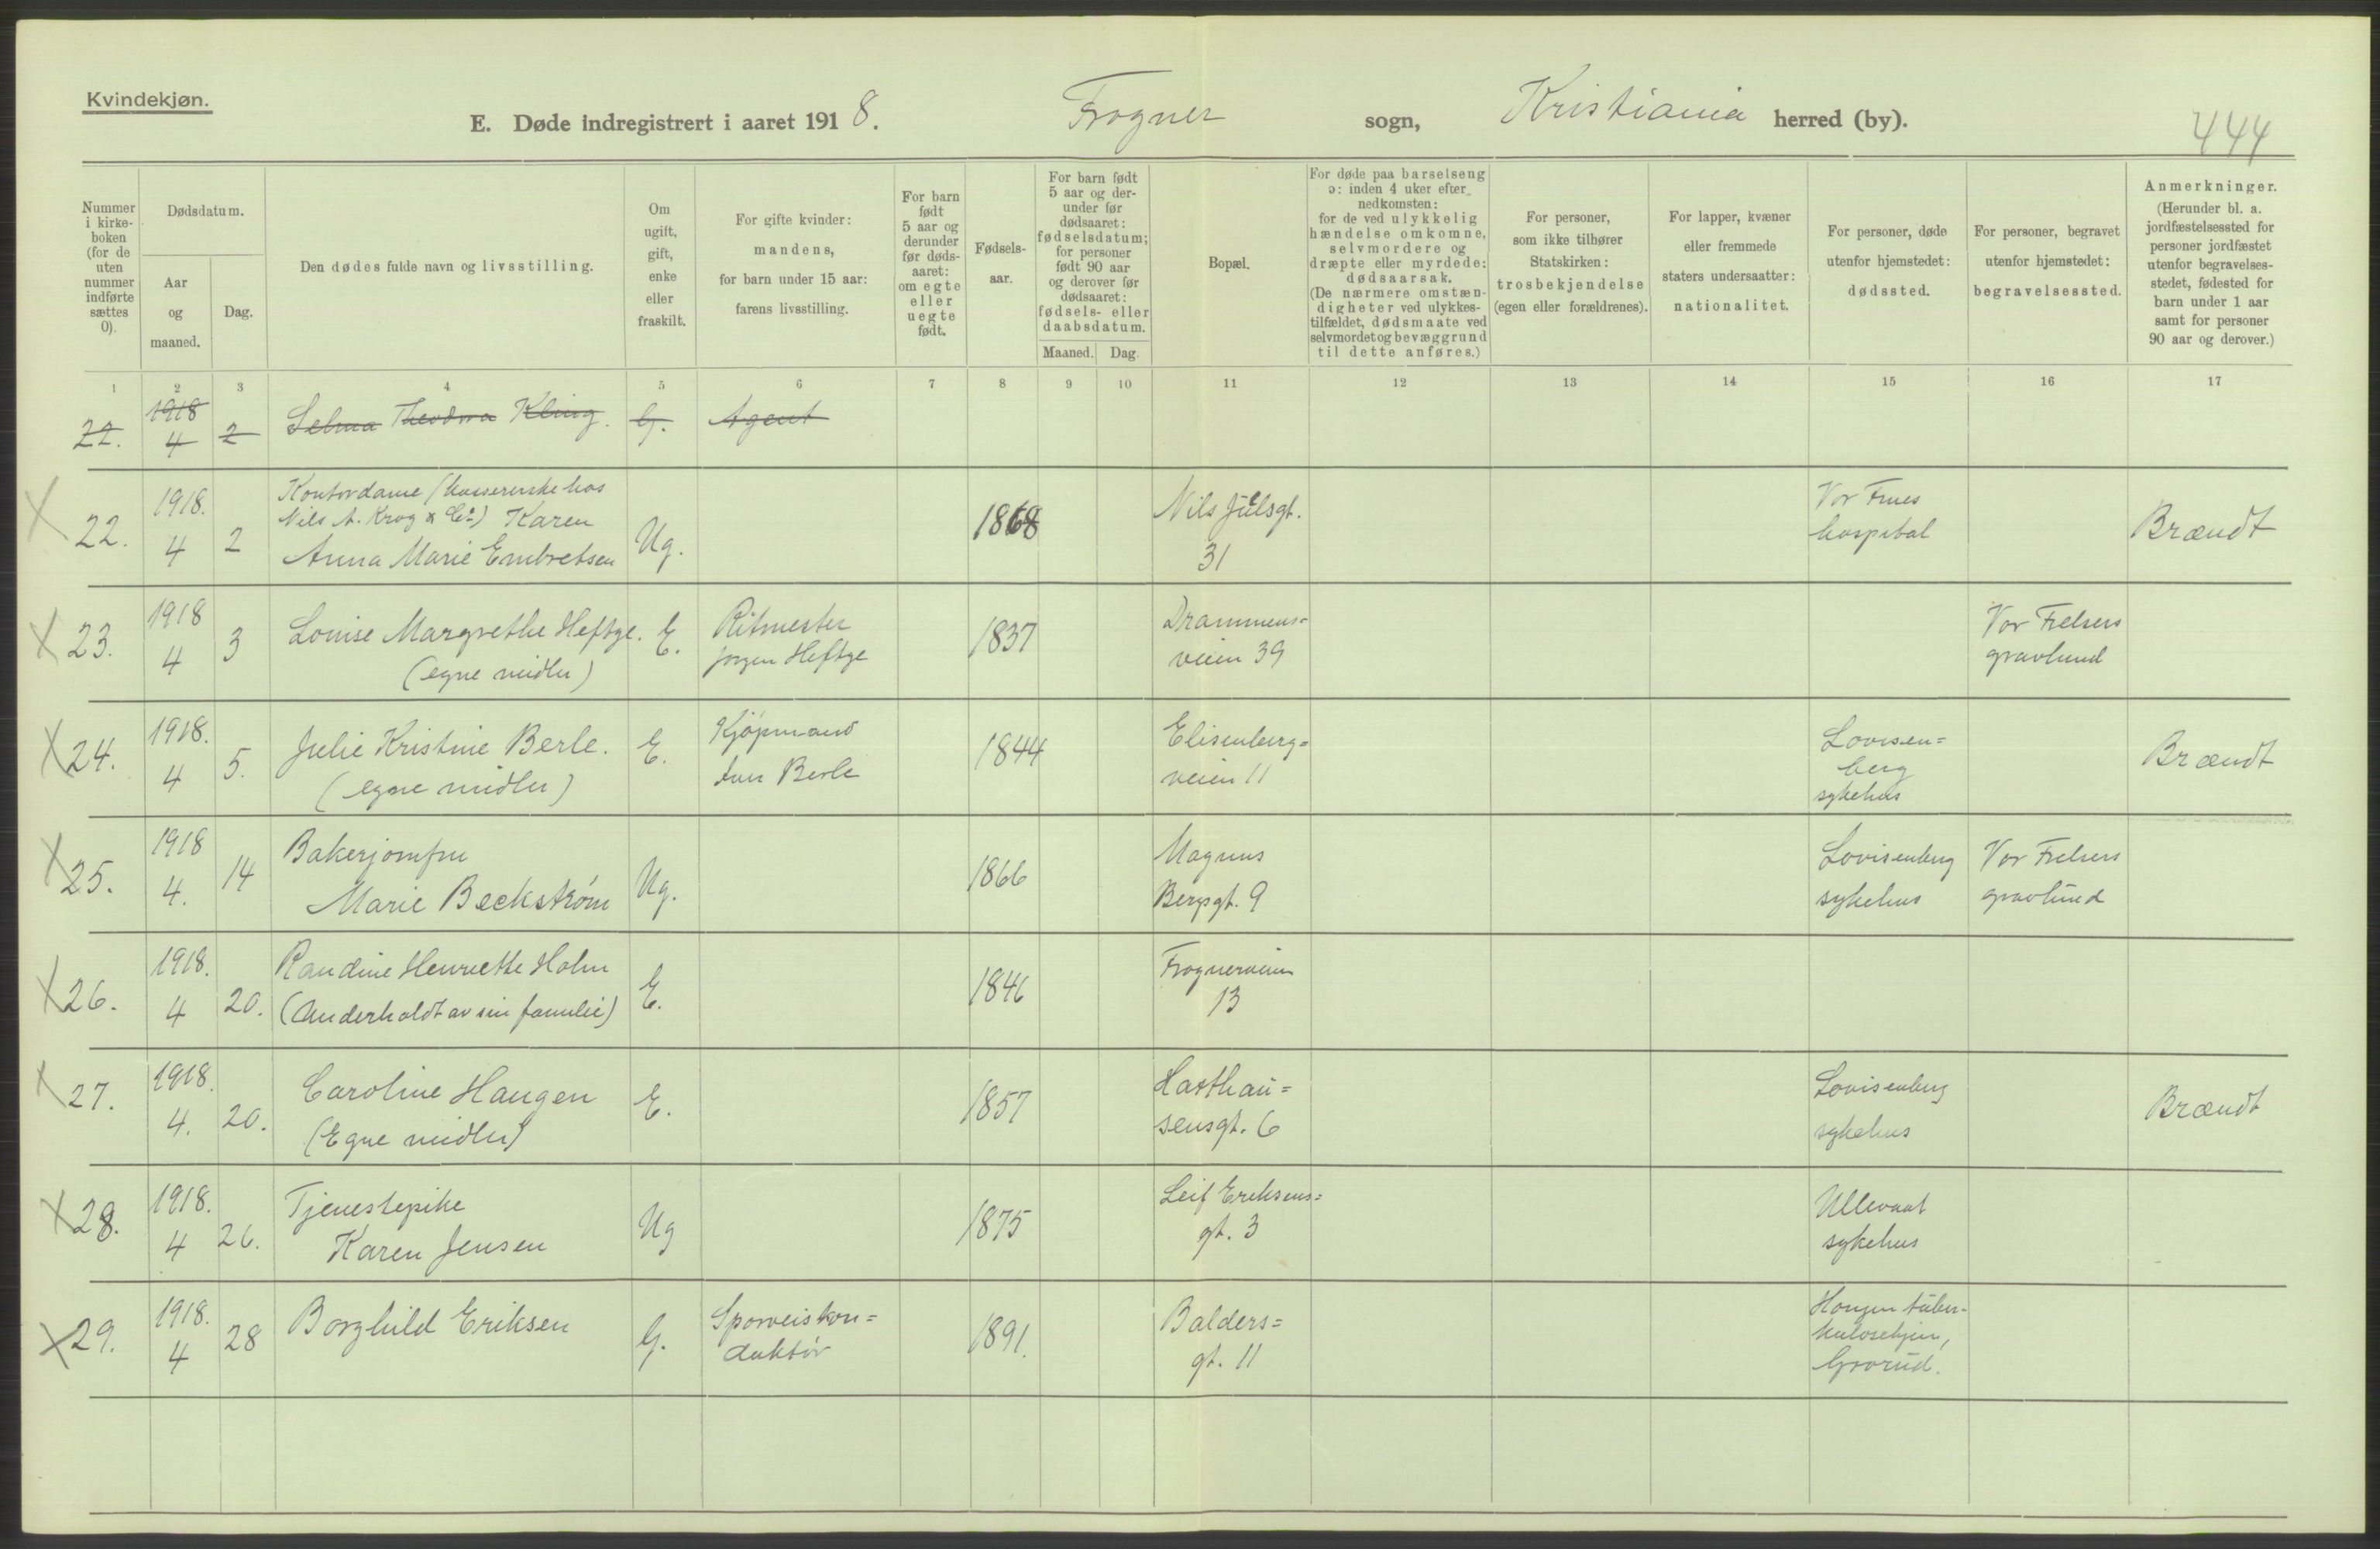 Kvindekjøn.
E. Døde indregistrert i aaret 1918. Frogner sogn, Kristiania herred (by).
444
Nummer i kirke- boken (for de uten nummer indførte sættes 0).
Dødsdatum.
Aar og maaned.
Dag.
Den dødes fulde navn og livsstilling.
Om ugift, gift, enke eller fraskilt.
For gifte kvinder: mandens, for barn under 15 aar: farens livsstilling.
For barn født 5 aar og derunder før døds- aaret: om egte eller uegte født.
Fødsels- aar.
For barn født 5 aar og der- under før dødsaaret: fødselsdatum; for personer født 90 aar og derover før dødsaaret: fødsels- eller daabsdatum.
Maaned. Dag.
Bopæl.
For døde paa barselseng ɔ: inden 4 uker efter nedkomsten: for de ved ulykkelig hændelse omkomne, selvmordere og dræpte eller myrdede: dødsaarsak. (De nærmere omstæn- digheter ved ulykkes- tilfældet, dødsmaate ved selvmordet og bevæggrund til dette anføres.)
For personer, som ikke tilhører Statskirken: trosbekjendelse (egen eller forældrenes).
For lapper, kvæner eller fremmede staters undersaatter: nationalitet.
For personer, døde utenfor hjemstedet: dødssted.
For personer, begravet utenfor hjemstedet: begravelsessted.
Anmerkninger. (Herunder bl. a. jordfæstelsessted for personer jordfæstet utenfor begravelses- stedet, fødested for barn under 1 aar samt for personer 90 aar og derover.)
1 2 3 4 5 6 7 8 9 10 11 12 13 14 15 16 17
22. 1918 4 2 Selma Theodora Kling. G. Agent
22. 1918. 4 2 Kontordame (kassererske hos
Nils A. Krog & Co) Karen
Anna Marie Embretsen Ug. 1868 Nils Juelsgt. 31 Vor Frues hospital Brændt
23. 1918 4 3 Louise Margrethe Heftye. (egne midler) E. Ritmester Jørgen Heftye 1837 Drammens= veien 39 Vor Frelsers gravlund
24. 1918. 4 5. Julie Kristine Berle. (egne midler) E. Kjøpmand Berle 1844 Elisenberg= veien 11 Lovisen= berg sykehus Brændt
25. 1918 4. 14 Bakerjomfru Marie Beckstrøm Ug. 1866 Magnus Bergsgt. 9 Lovisenberg sykehus Vor Frelsers gravlund
26. 1918. 4 20. Randine Henriette Holm (Underholdt av sin familie) E. 1846 Frognerveien 13
27. 1918. 4. 20. Caroline Haugen (Egne midler) E. 1857 Haxthau= sensgt. 6 Lovisenberg sykehus Brændt
28. 1918. 4 26. Tjenestepike Karen Jensen Ug 1875 Leif Eriksens= gt. 3 Ullevaal sykehus
29. 1918. 4 28 Borghild Eriksen G. Sporveiskon= duktør 1891. Balders= gt. 11 tuber- kulosehjem, Grorud.